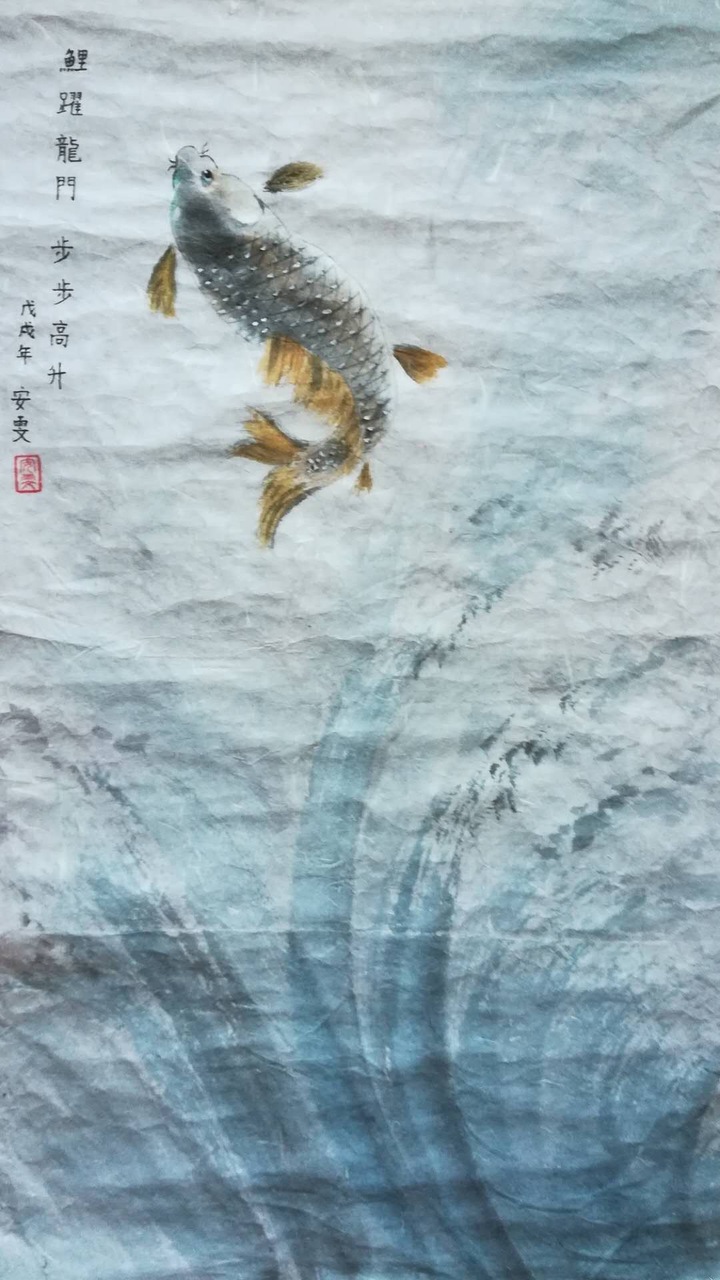 鯉躍龍門 步步高升
戊戌年 安雯